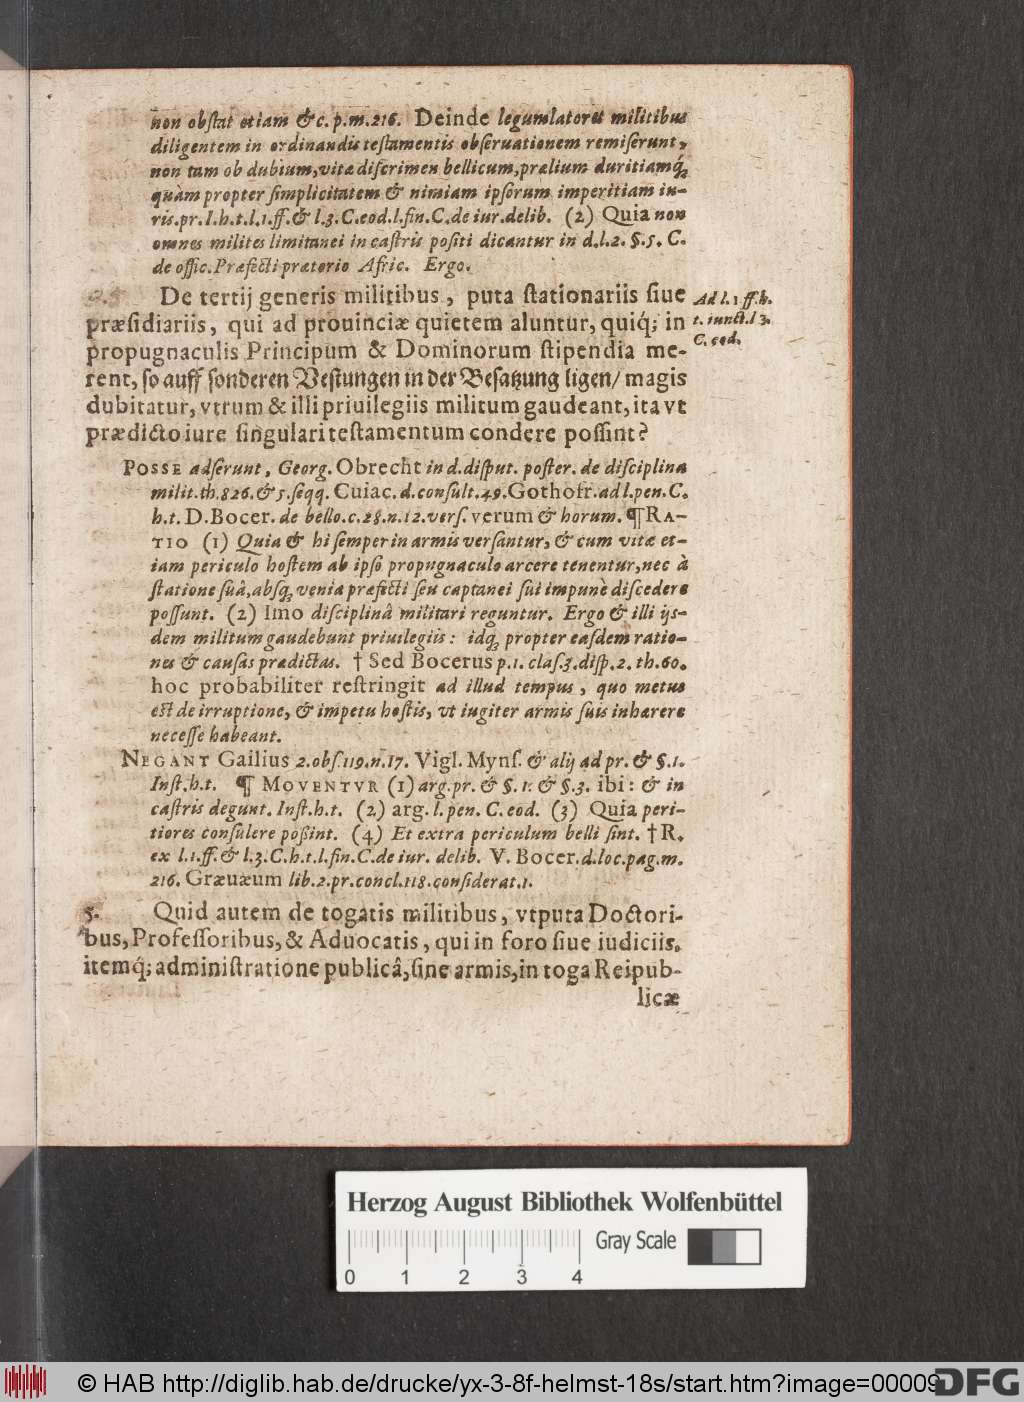 non obstat etiam &c. p.m.216. Deinde legumlatores militibus
diligentem in ordinandis testamentis obseruationem remiserunt,
non tam ob dubium, vitæ discrimen bellicum, prælium duritiamq́;
quàm propter simplicitatem & nimiam ipsorum imperitiam iu-
ris. pr. I. h. t. l. 1. ff. & l. 3. C. eod. l. fin. C. de iur. delib. (2) Quia non
omnes milites limitanei in castris positi dicantur in d. l. 2. §. 5. C.
de offic. Præfecti prætorio Afric. Ergo.
De tertij generis militibus, puta stationariis siue
præsidiariis, qui ad prouinciæ quietem aluntur, quiq́; in
propugnaculis Principum & Dominorum stipendia me-
rent, so auff sonderen Vestungen in der Besatzung ligen/ magis
dubitatur, vtrum & illi priuilegiis militum gaudeant, ita vt
prædicto iure singulari testamentum condere possint?
Ad l. 1 ff. h.
t. iunct. l 3.
C. eod.
POSSE adserunt, Georg. Obrecht in d. disput. poster. de disciplina
milit. th. 826. & 5. seqq. Cuiac. d. consult. 49. Gothofr. ad l. pen. C.
h. t. D. Bocer. de bello. c. 28. n. 12. vers. verum & horum. ¶ RA-
TIO (1) Quia & hi semper in armis versantur, & cum vitæ et-
iam periculo hostem ab ipso propugnaculo arcere tenentur, nec à
statione suâ, absq; venia præfecti seu captanei sui impunè discedere
possunt. (2) Imo disciplinâ militari reguntur. Ergo & illi ijs-
dem militum gaudebunt priuilegiis: idq; propter easdem ratio-
nes & causas prædictas. † Sed Bocerus p. 1. clas. 3. disp. 2. th. 60.
hoc probabiliter restringit ad illud tempus, quo metus
est de irruptione, & impetu hostis, vt iugiter armis suis inhærere
necesse habeant.
NEGANT Gailius 2. obs. 119. n. 17. Vigl. Myns. & alij ad pr. & §. 1.
Inst. h. t. ¶ MOVENTVR (1) arg. pr. & §. 1. & §. 3. ibi: & in
castris degunt. Inst. h. t. (2) arg. l. pen. C. eod. (3) Quia peri-
tiores consulere poßint. (4) Et extra periculum belli sint. † R.
ex l. 1. ff. & l. 3. C. h. t. l. fin. C. de iur. delib. V. Bocer. d. loc. pag. m.
216. Græuæum lib. 2. pr. concl. 118. considerat. 1.
5. Quid autem de togatis militibus, vtputa Doctori-
bus, Professoribus, & Aduocatis, qui in foro siue iudiciis,
itemq́; administratione publicâ, sine armis, in toga Reipub-
licæ
Herzog August Bibliothek Wolfenbüttel
Gray Scale
0 1 2 3 4
© HAB http://diglib.hab.de/drucke/yx-3-8f-helmst-18s/start.htm?image=00009
DFG